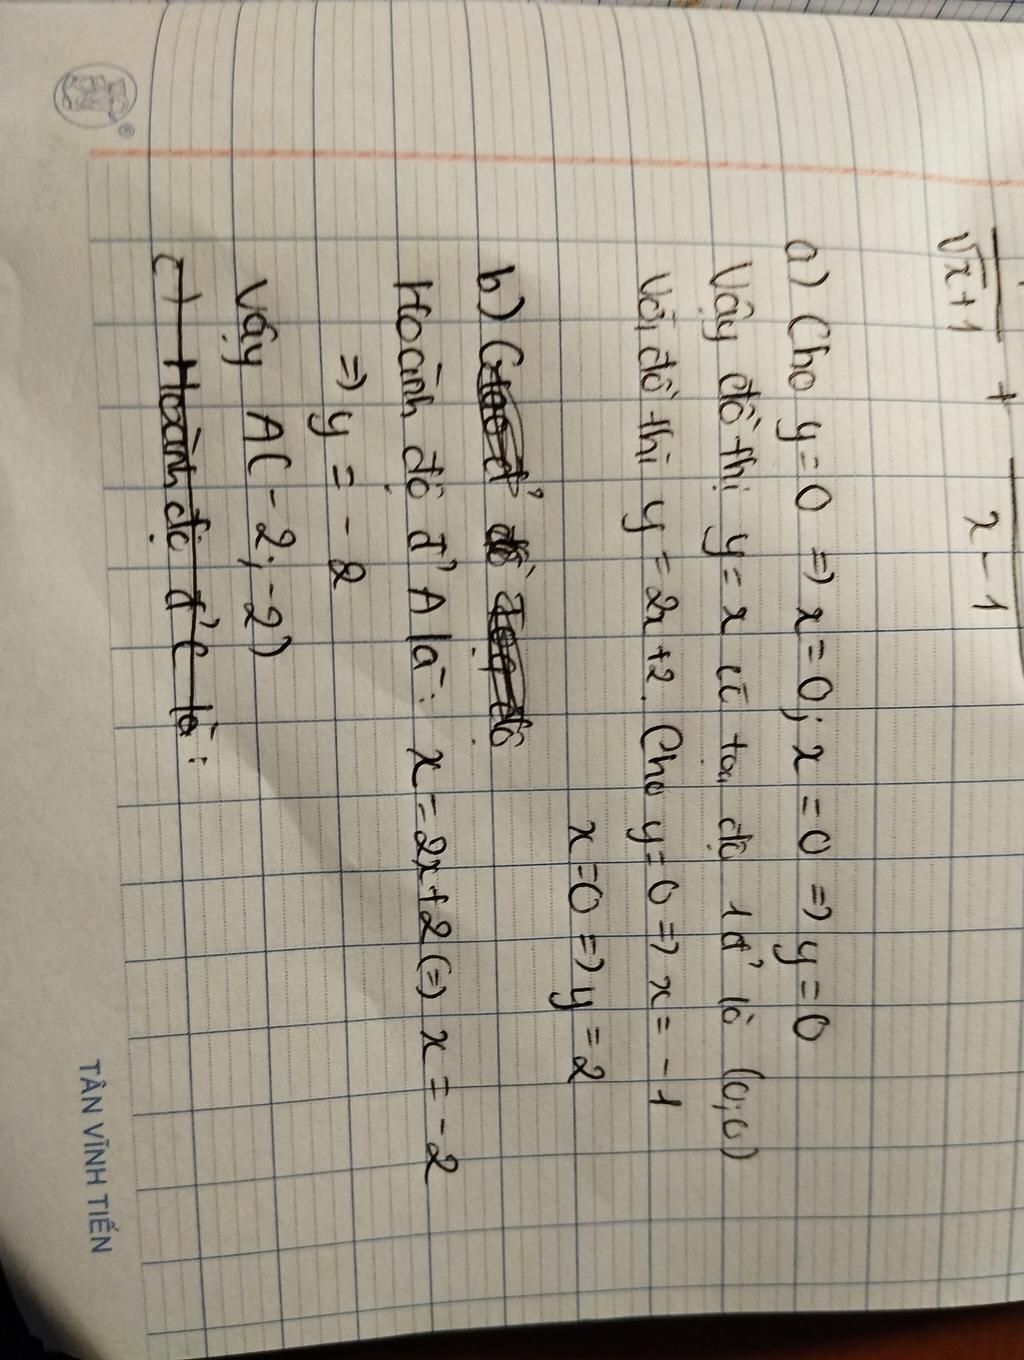 √x+1 + x-1
a) Cho y=0 => x=0; x=0 => y=0
Vậy đồ thị y=x có toạ độ 1đ' là (0;0)
Với đồ thị y=2x+2. Cho y=0 => x=-1
x=0 => y=2
b)
Hoành độ đ' A là: x=2x+2 (=) x=-2
=> y=-2
Vậy A(-2;-2)
c) Hoành độ đ' C là:
TÂN VĨNH TIẾN